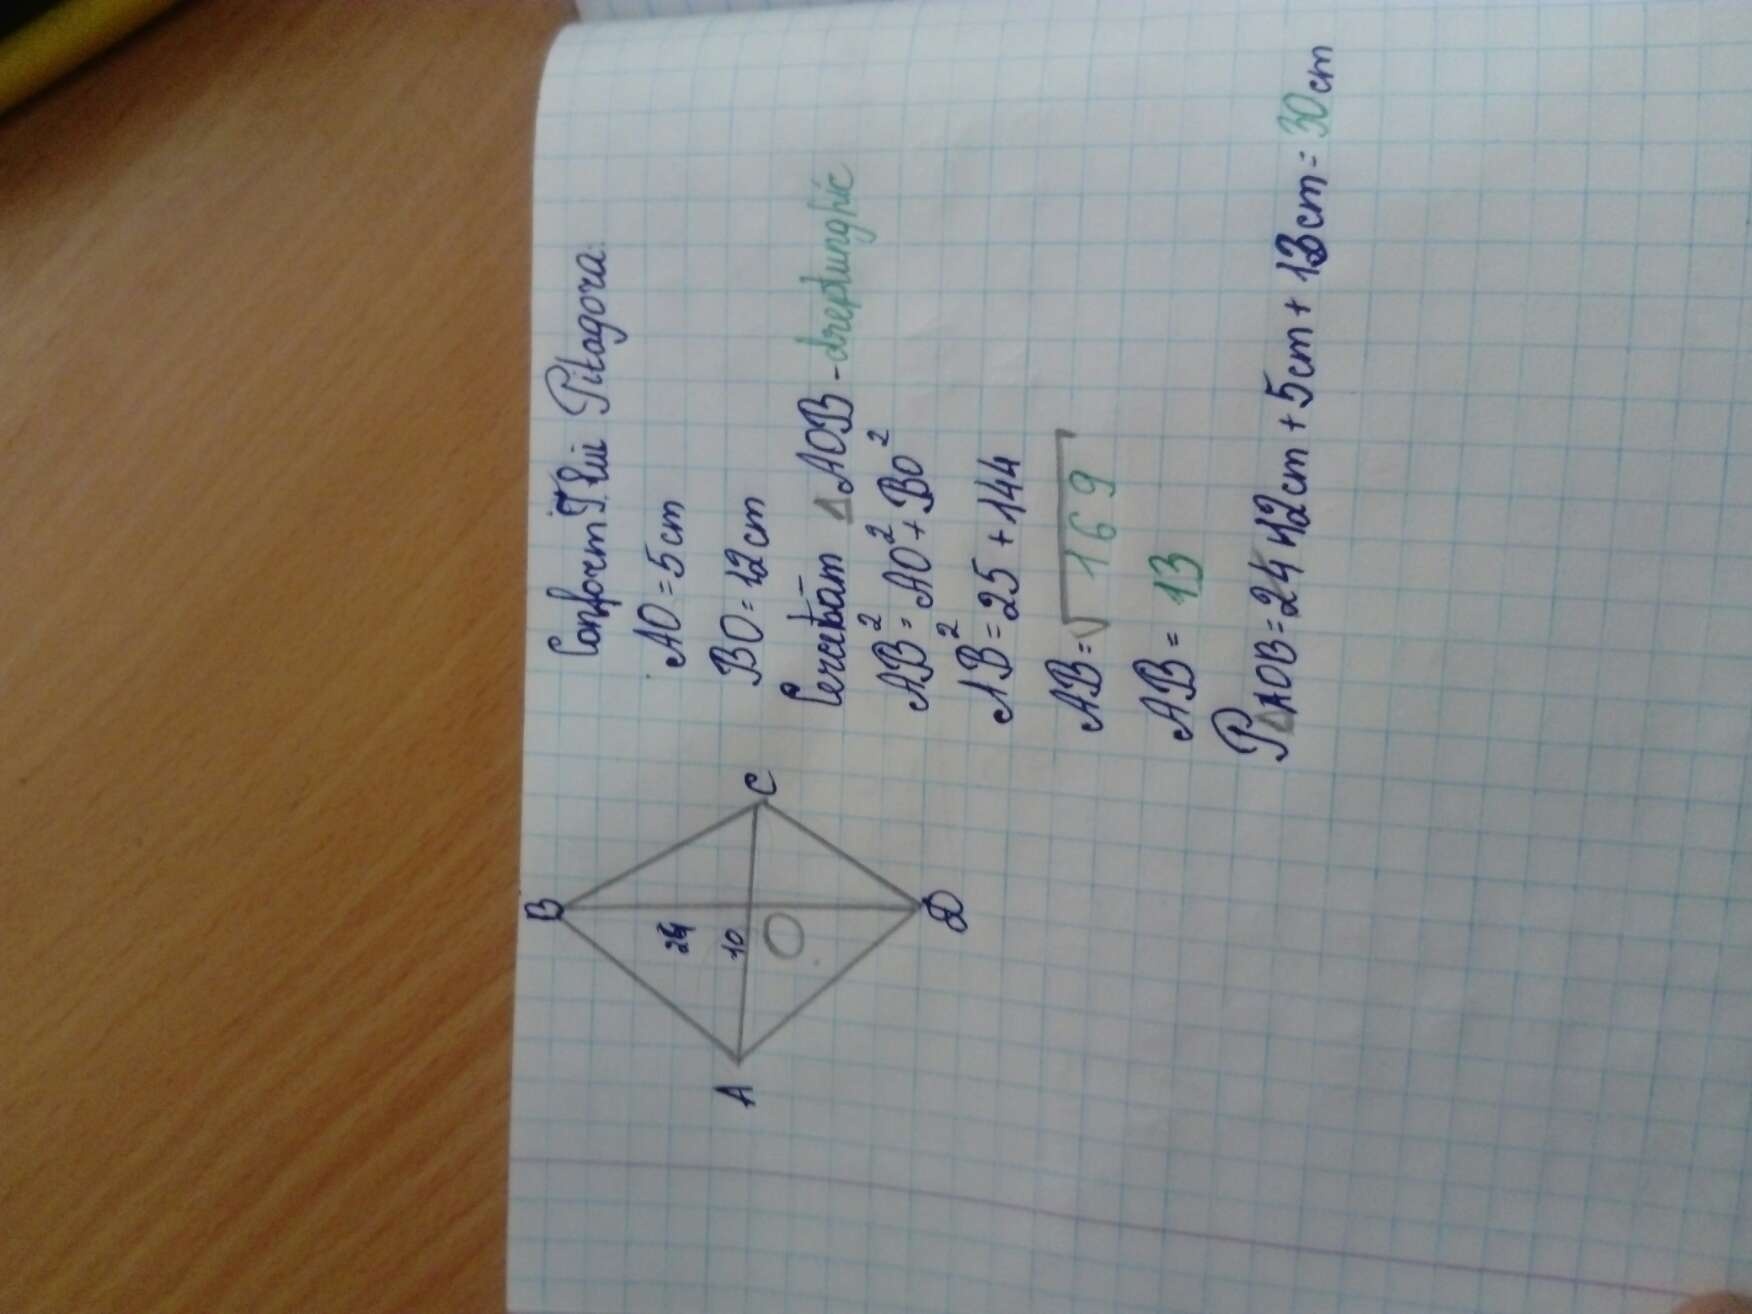 B
24
10
A
C
O
D
Conform T.lui Pitagora:
AO = 5 cm
BO = 12 cm
Cercetăm Δ AOB - dreptunghic
AB² = AO² + BO²
AB² = 25 + 144
AB = √169
AB = 13
PΔAOB = 12cm + 5cm + 13cm = 30cm